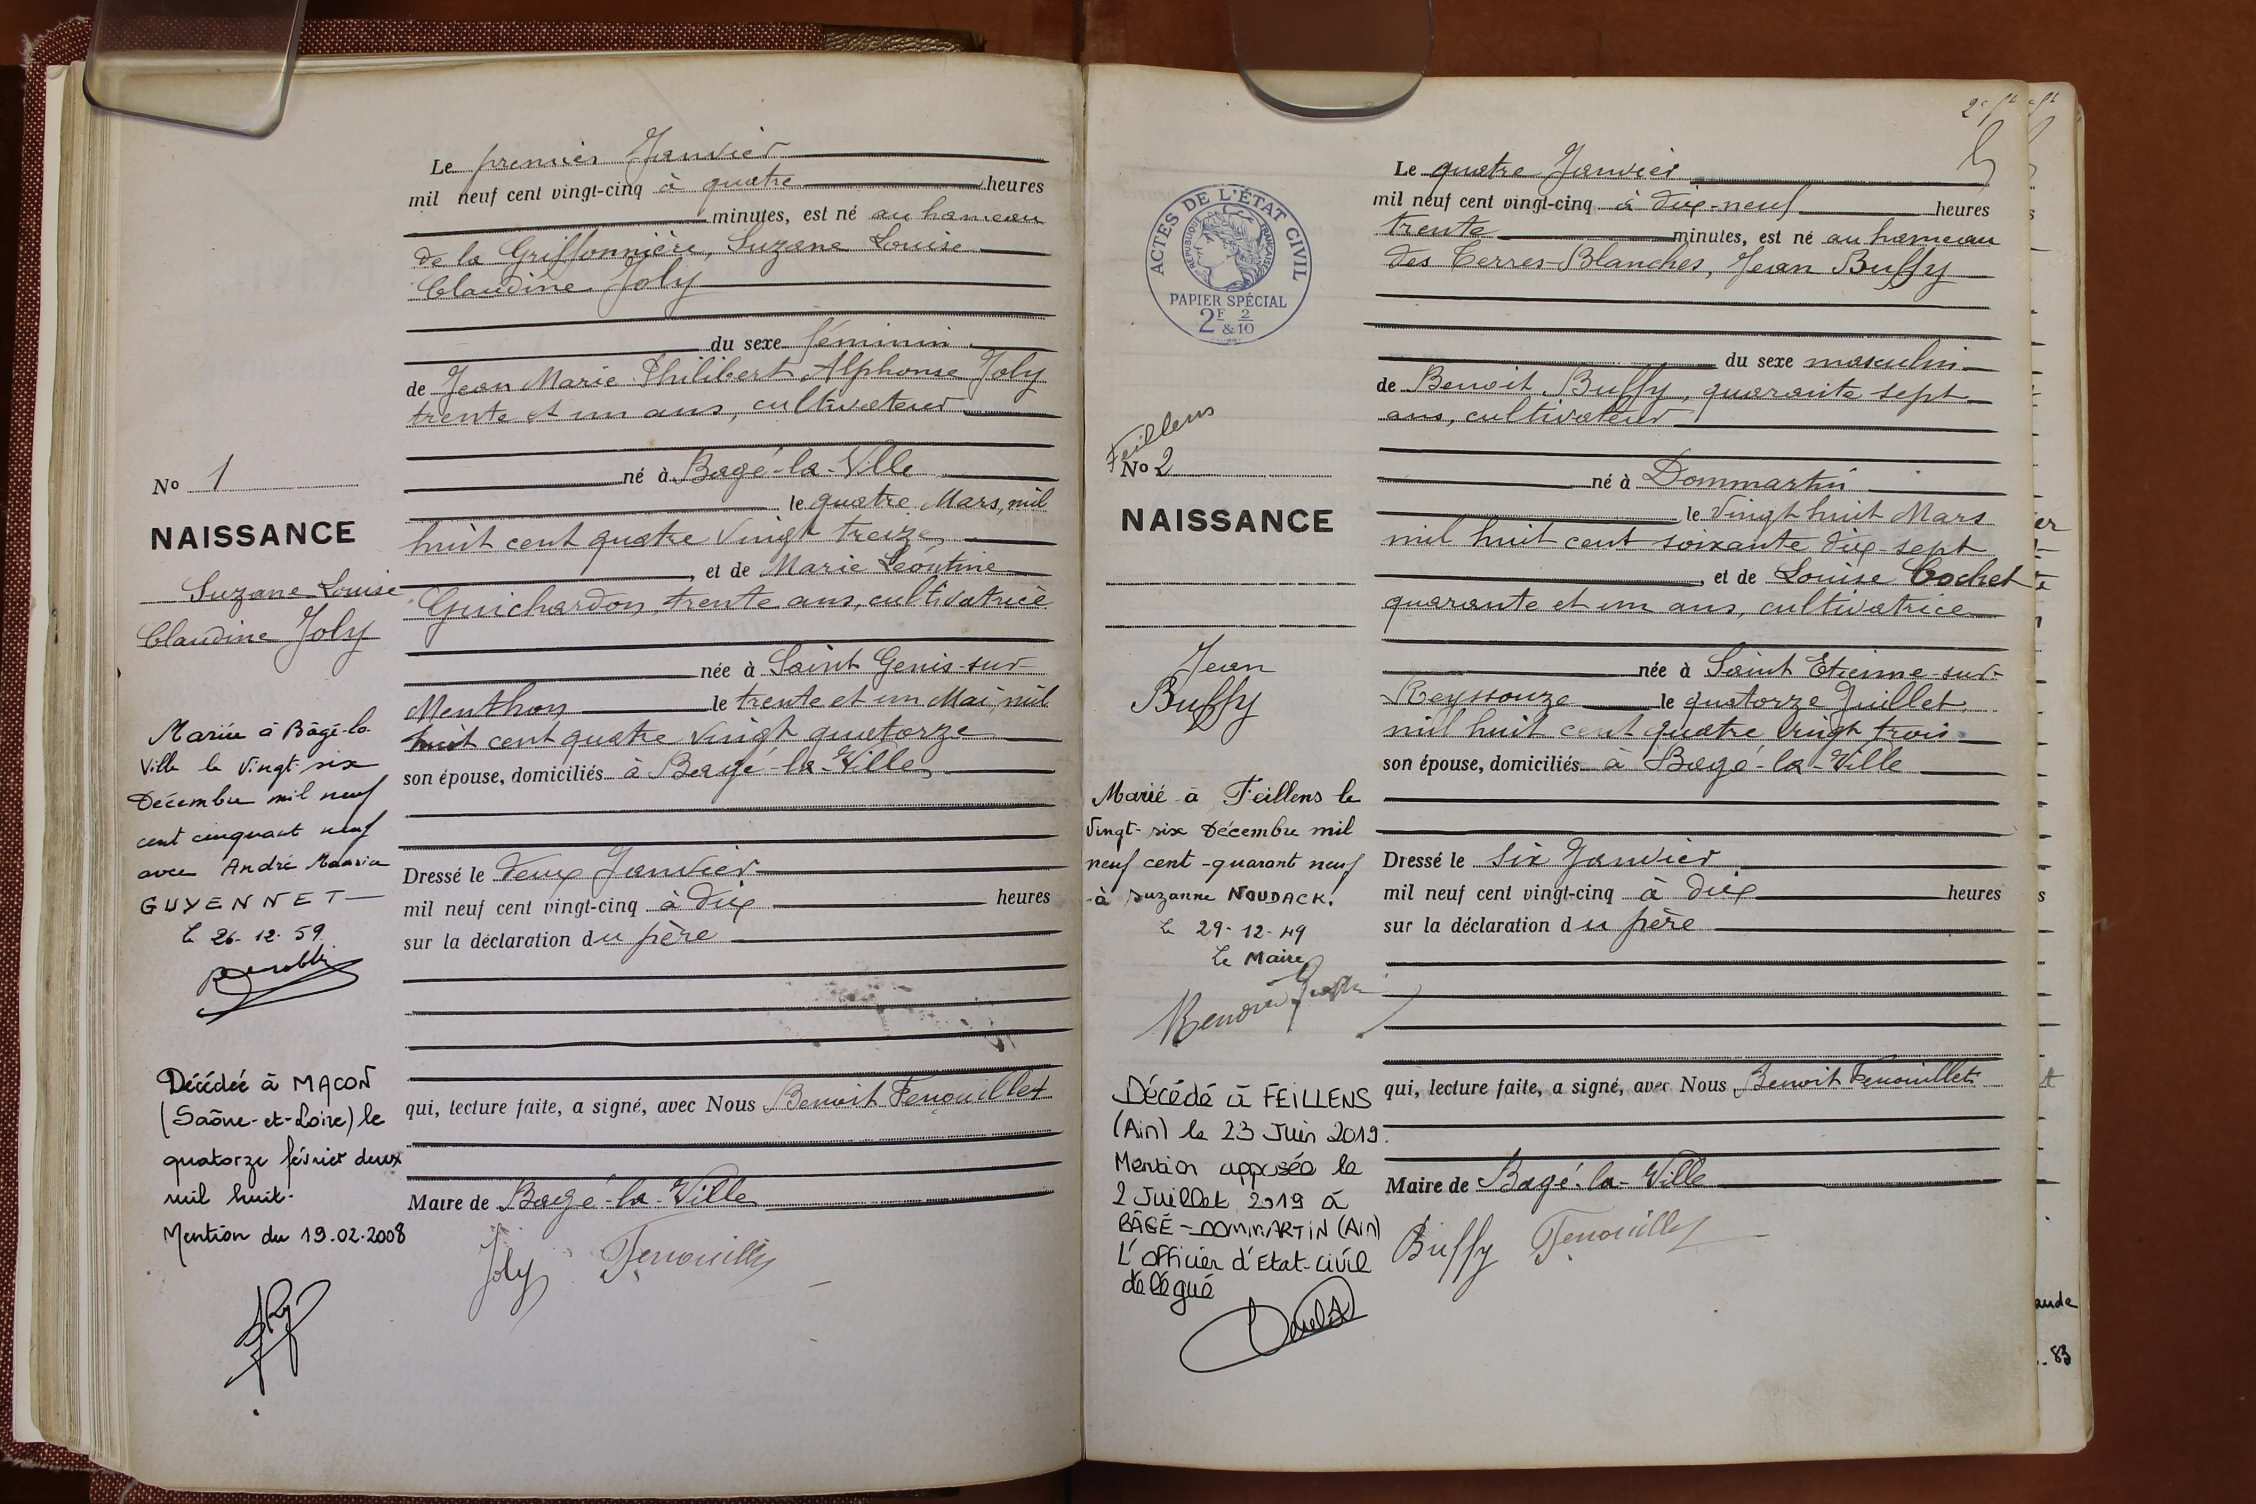 Le premier Janvier
mil neuf cent vingt-cinq à quatre heures
minutes, est né au hameau
de la Griffonnière, Suzane Louise
Claudine Joly
du sexe féminin
de Jean Marie Philibert Alphonse Joly
trente et un ans, cultivateur
né à Bagé-la-Ville
le quatre Mars, mil
huit cent quatre vingt treize
, et de Marie Léontine
Guichardon, trente ans, cultivatrice
née à Saint Genis-sur-
Menthon le trente et un Mai, mil
huit cent quatre vingt quatorze
son épouse, domiciliés à Bagé-la-Ville
Dressé le deux Janvier
mil neuf cent vingt-cinq à dix heures
sur la déclaration du père
qui, lecture faite, a signé, avec Nous Benoit Fenouillet
Maire de Bagé-la-Ville
Joly Fenouillet
No 1
NAISSANCE
Suzane Louise
Claudine Joly
Mariée à Bâgé-la
Ville le vingt-six
Décembre mil neuf
cent cinquant neuf
avec André Maurice
GUYENNET
le 26-12-59
Décédée à MACON
(Saône-et-Loire) le
quatorze février deux
mil huit.
Mention du 19.02.2008
ACTES DE L'ÉTAT CIVIL
RÉPUBLIQUE FRANÇAISE
PAPIER SPÉCIAL
2F & 2/10
Feillens
No 2
NAISSANCE
Jean
Buffy
Marié à Feillens le
vingt-six Décembre mil
neuf cent-quarant neuf
à Suzanne NOUDACK.
Le 29-12-49
Le Maire
Décédé à FEILLENS
(Ain) le 23 Juin 2019.
Mention apposée le
2 Juillet 2019 à
BÂGÉ-DOMMARTIN (Ain)
L'officier d'Etat-civil
délégué
Le quatre Janvier
mil neuf cent vingt-cinq à dix-neuf heures
trente minutes, est né au hameau
des Terres-Blanches, Jean Buffy
du sexe masculin
de Benoit Buffy, quarante sept
ans, cultivateur
né à Dommartin
le vingt huit Mars
mil huit cent soixante dix-sept
, et de Louise Cochet
quarante et un ans, cultivatrice
née à Saint Etienne-sur-
Reyssouze le quatorze Juillet
mil huit cent quatre vingt trois
son épouse, domiciliés à Bagé-la-Ville
Dressé le six Janvier
mil neuf cent vingt-cinq à dix heures
sur la déclaration du père
qui, lecture faite, a signé, avec Nous Benoit Fenouillet
Maire de Bagé-la-Ville
Buffy Fenouillet